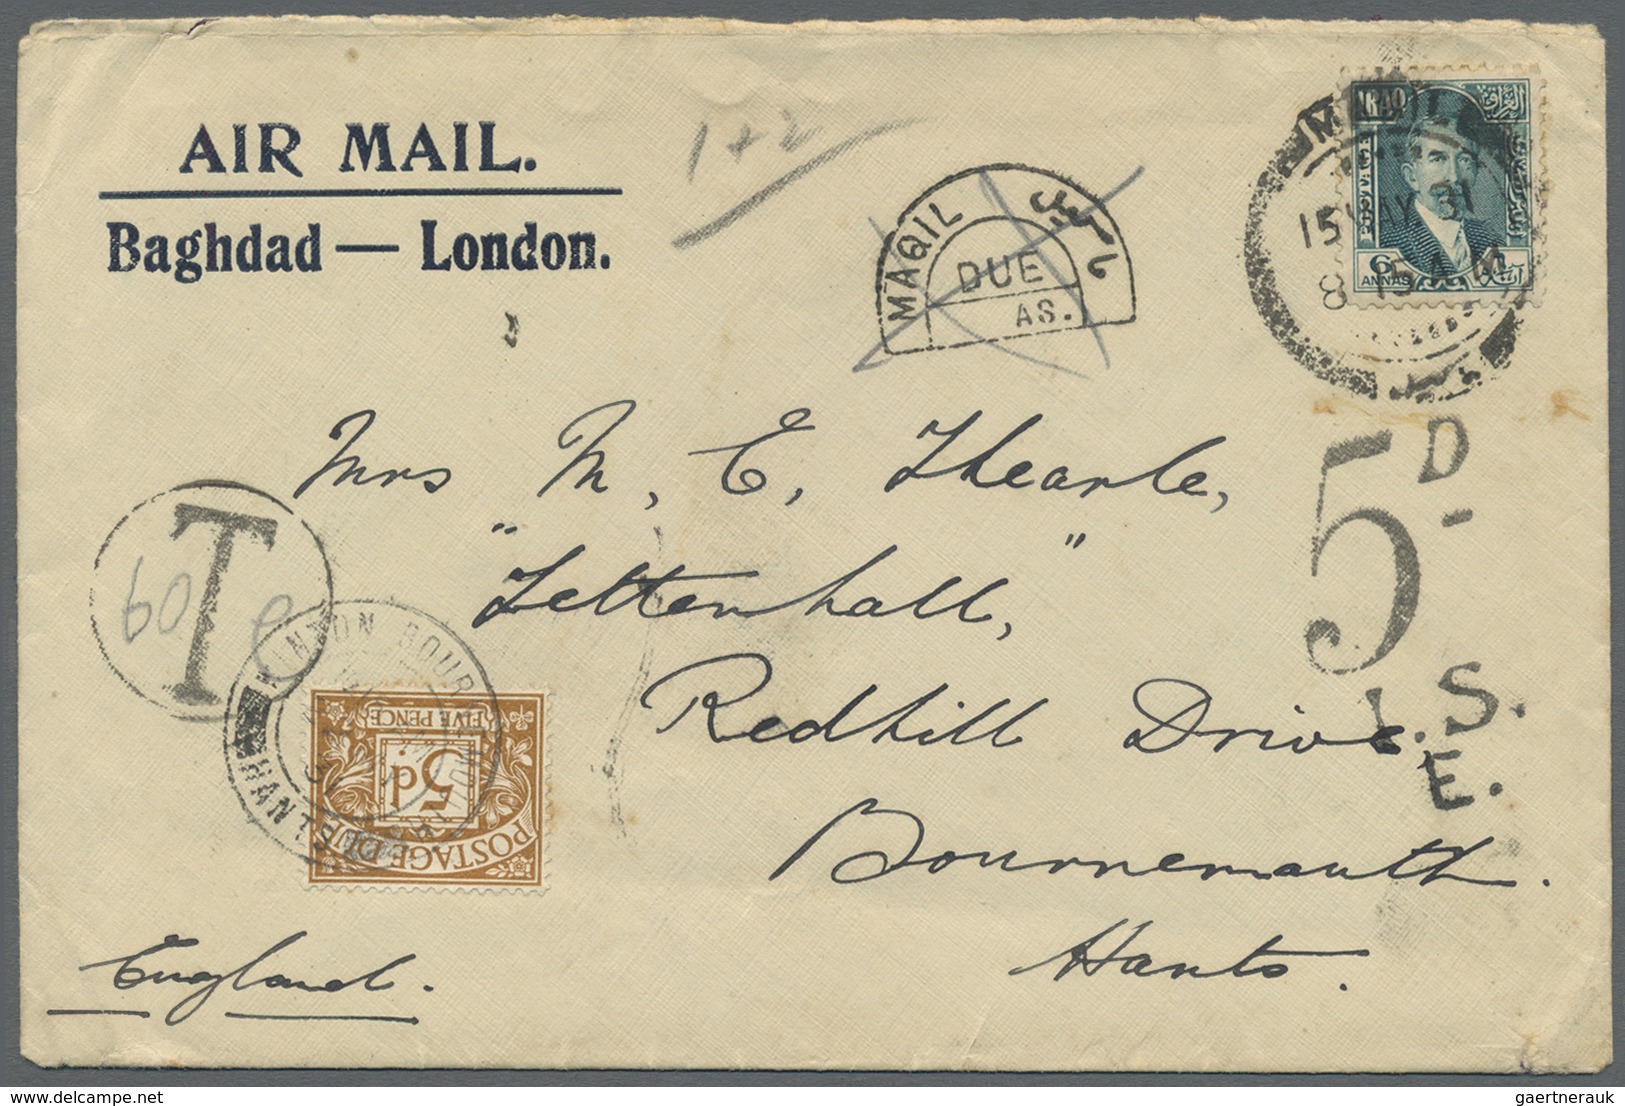 AIR MAIL.
Baghdad — London.
1+2
MAQIL
DUE
AS.
IRAQ
العراق
6
ANNAS
15 MAY 31
8 15 A.M
5D.
I.S.
E.
Mrs M. E. Thearle,
"Lettenhall,"
Redhill Drive,
Bournemouth.
Hants.
T
60 c
WINTON BOURNEMOUTH
HANTS
POSTAGE DUE
5d.
FIVE PENCE
England.
gaertnerauk